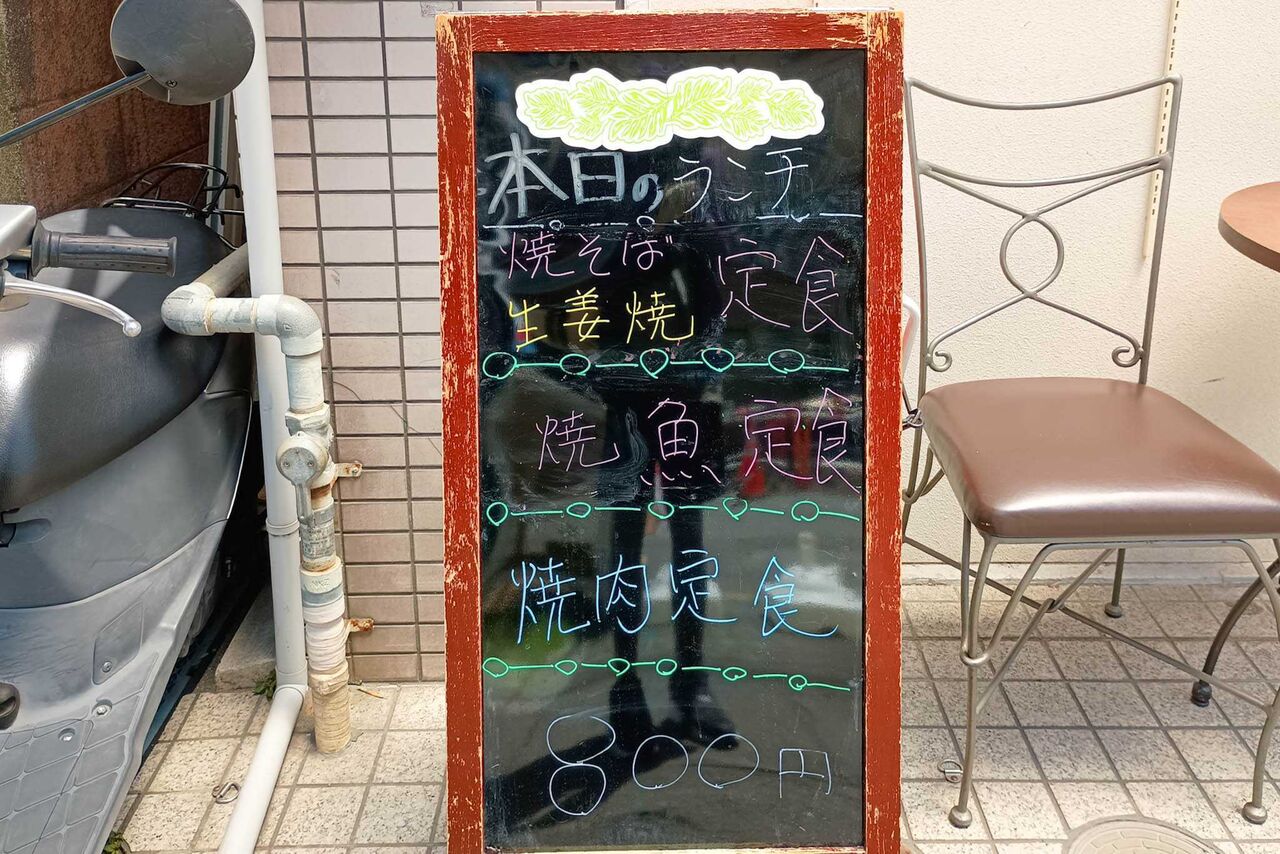 本日のランチ
焼そば 定食
生姜焼
焼魚定食
焼肉定食
800円